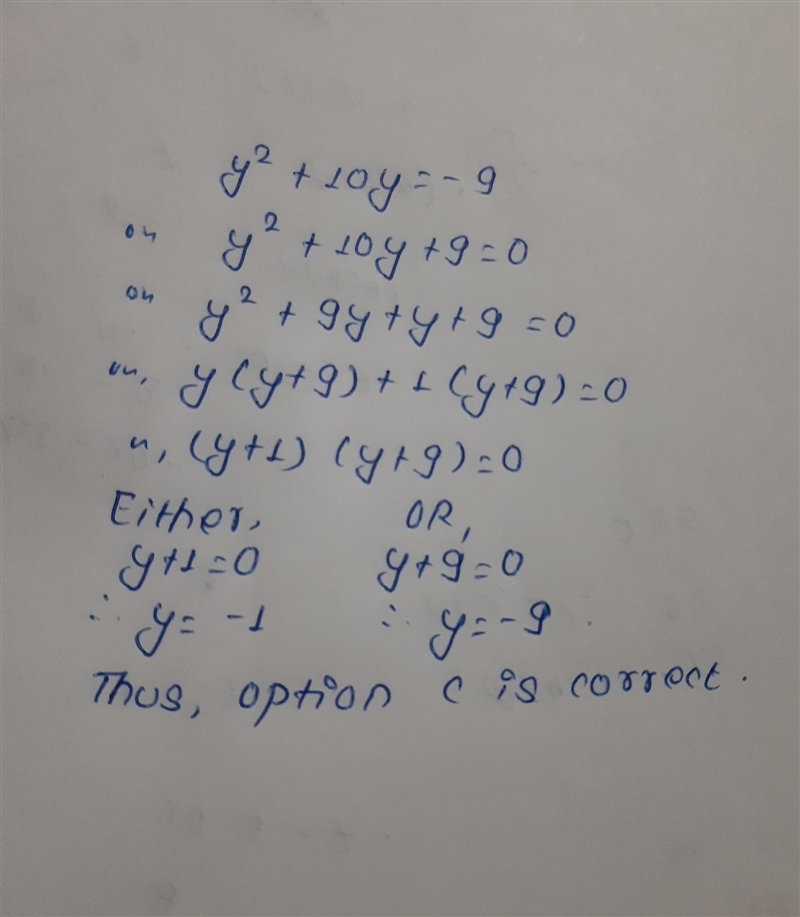 y² + 10y = - 9
or y² + 10y + 9 = 0
or y² + 9y + y + 9 = 0
or, y (y + 9) + 1 (y + 9) = 0
(y + 1) (y + 9) = 0
Either, OR,
y + 1 = 0 y + 9 = 0
∴ y = -1 ∴ y = -9
Thus, option c is correct.